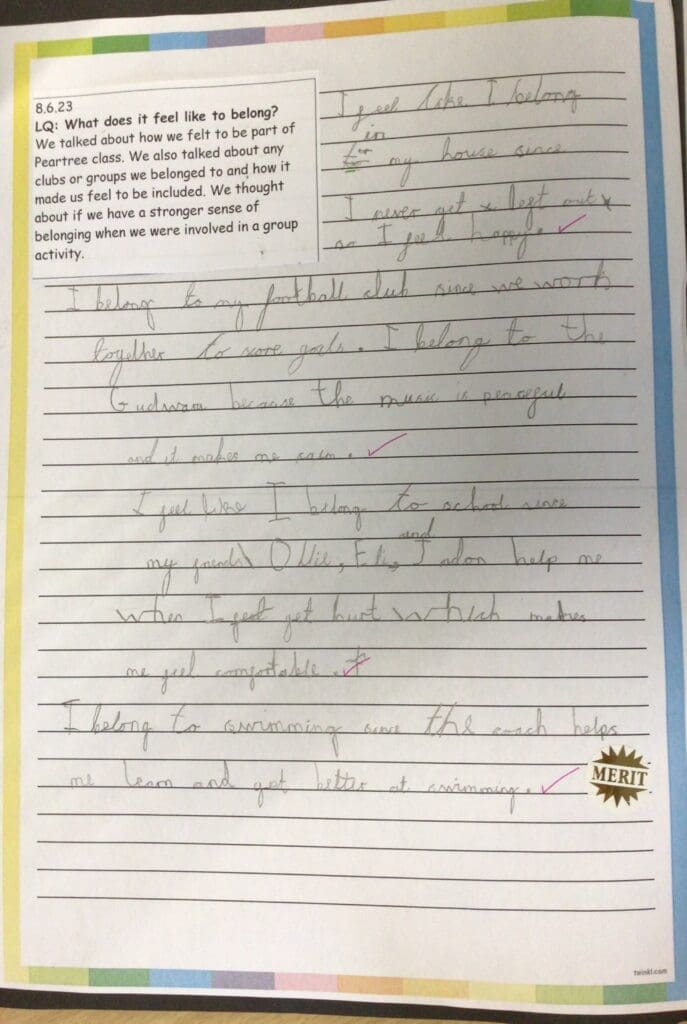 8.6.23
LQ: What does it feel like to belong?
We talked about how we felt to be part of
Peartree class. We also talked about any
clubs or groups we belonged to and how it
made us feel to be included. We thought
about if we have a stronger sense of
belonging when we were involved in a group
activity.
I feel like I belong
in
my house since
I never get left out
so I feel happy.
I belong to my football club since we work
together to score goals. I belong to the
Gudwara because the music is peaceful
and it makes me calm.
I feel like I belong to school since
my friends Ollie, Eli, and
help me
when I feel get hurt which makes
me feel comfortable.
I belong to swimming since the coach helps
me learn and get better at swimming.
MERIT
twinkl.com